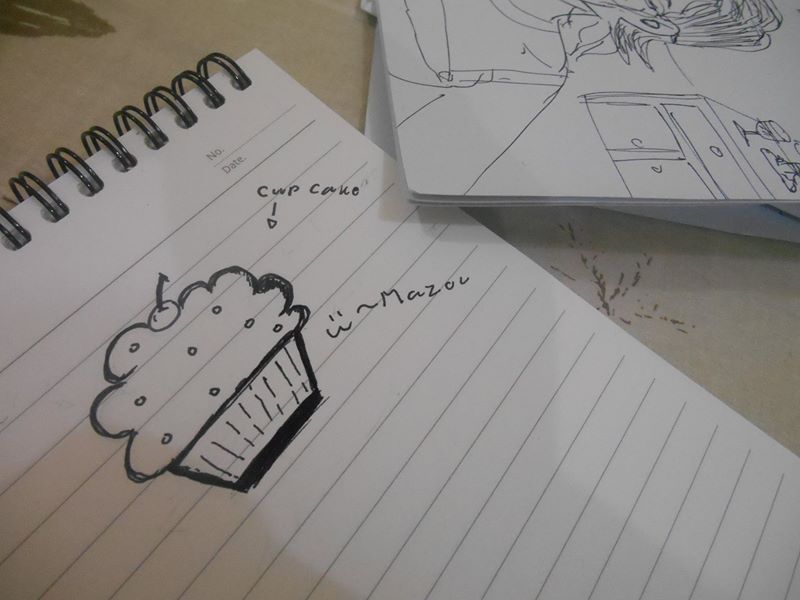 No.
Date.
cup cake
ü ~Mazou